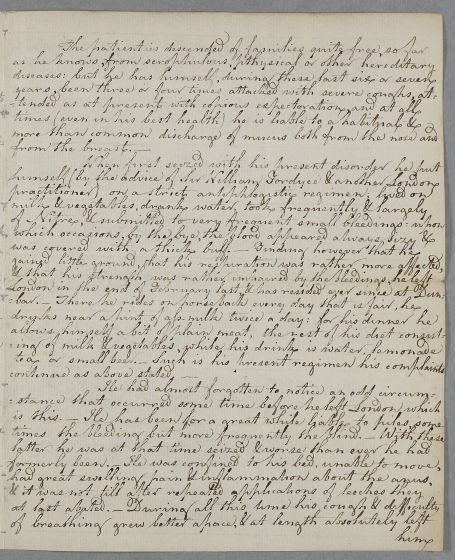 The patient is descended of families quite free, so far
as he knows from scrophulous, phthysical or other hereditary
diseases: but he has himself, during these last six or seven
years, been three or four times attacked with severe coughs, at-
-tended as at present with copious expectoration, and at all
times (even in his best health) he is liable to a habitual &
more than common discharge of mucus both from the nose and
from the breast. —
When first seized with his present disorder he put
himself (by the advice of Sir William Fordyce & another London
practitioner) on a strict antiphlogistic regimen, lived on
milk & vegetables, drank water, took frequently & largely
of Nitre, & submitted to very frequent small bleedings: upon
which occasions, by the bye, the blood appeared always sizy &
was covered with a thick buff. — Finding however that he
gained little ground, that his respiration was rather more affected,
& that his strength was rather impaired by the bleedings, he left
London in the end of February last & has resided ever since at Dun-
-bar. — There he rides on horseback every day that is fair, he
drinks near a pint of ass-milk twice a day: for his dinner he
allows himself a bit of plain meat, the rest of his diet consist-
-ing of milk & vegetables, while his drink is water, lemonade
tea or small beer. — Such is his present regimen his complaints
continue as above stated. —
He had almost forgotten to notice an odd circum-
-stance that occurred some time before he left London, which
is this. — He has been for a great while liable to piles, some-
times the bleeding but more frequently the blind. — With these
latter he was at that time seized & worse than ever he had
formerly been. — He was confined to his bed, unable to move,
had great swelling pain & inflammation about the anus,
& it was not till after repeated applications of leeches they
at last abated. — During all this time his cough & difficulty
of breathing grew better apace, & at length absolutely left
him